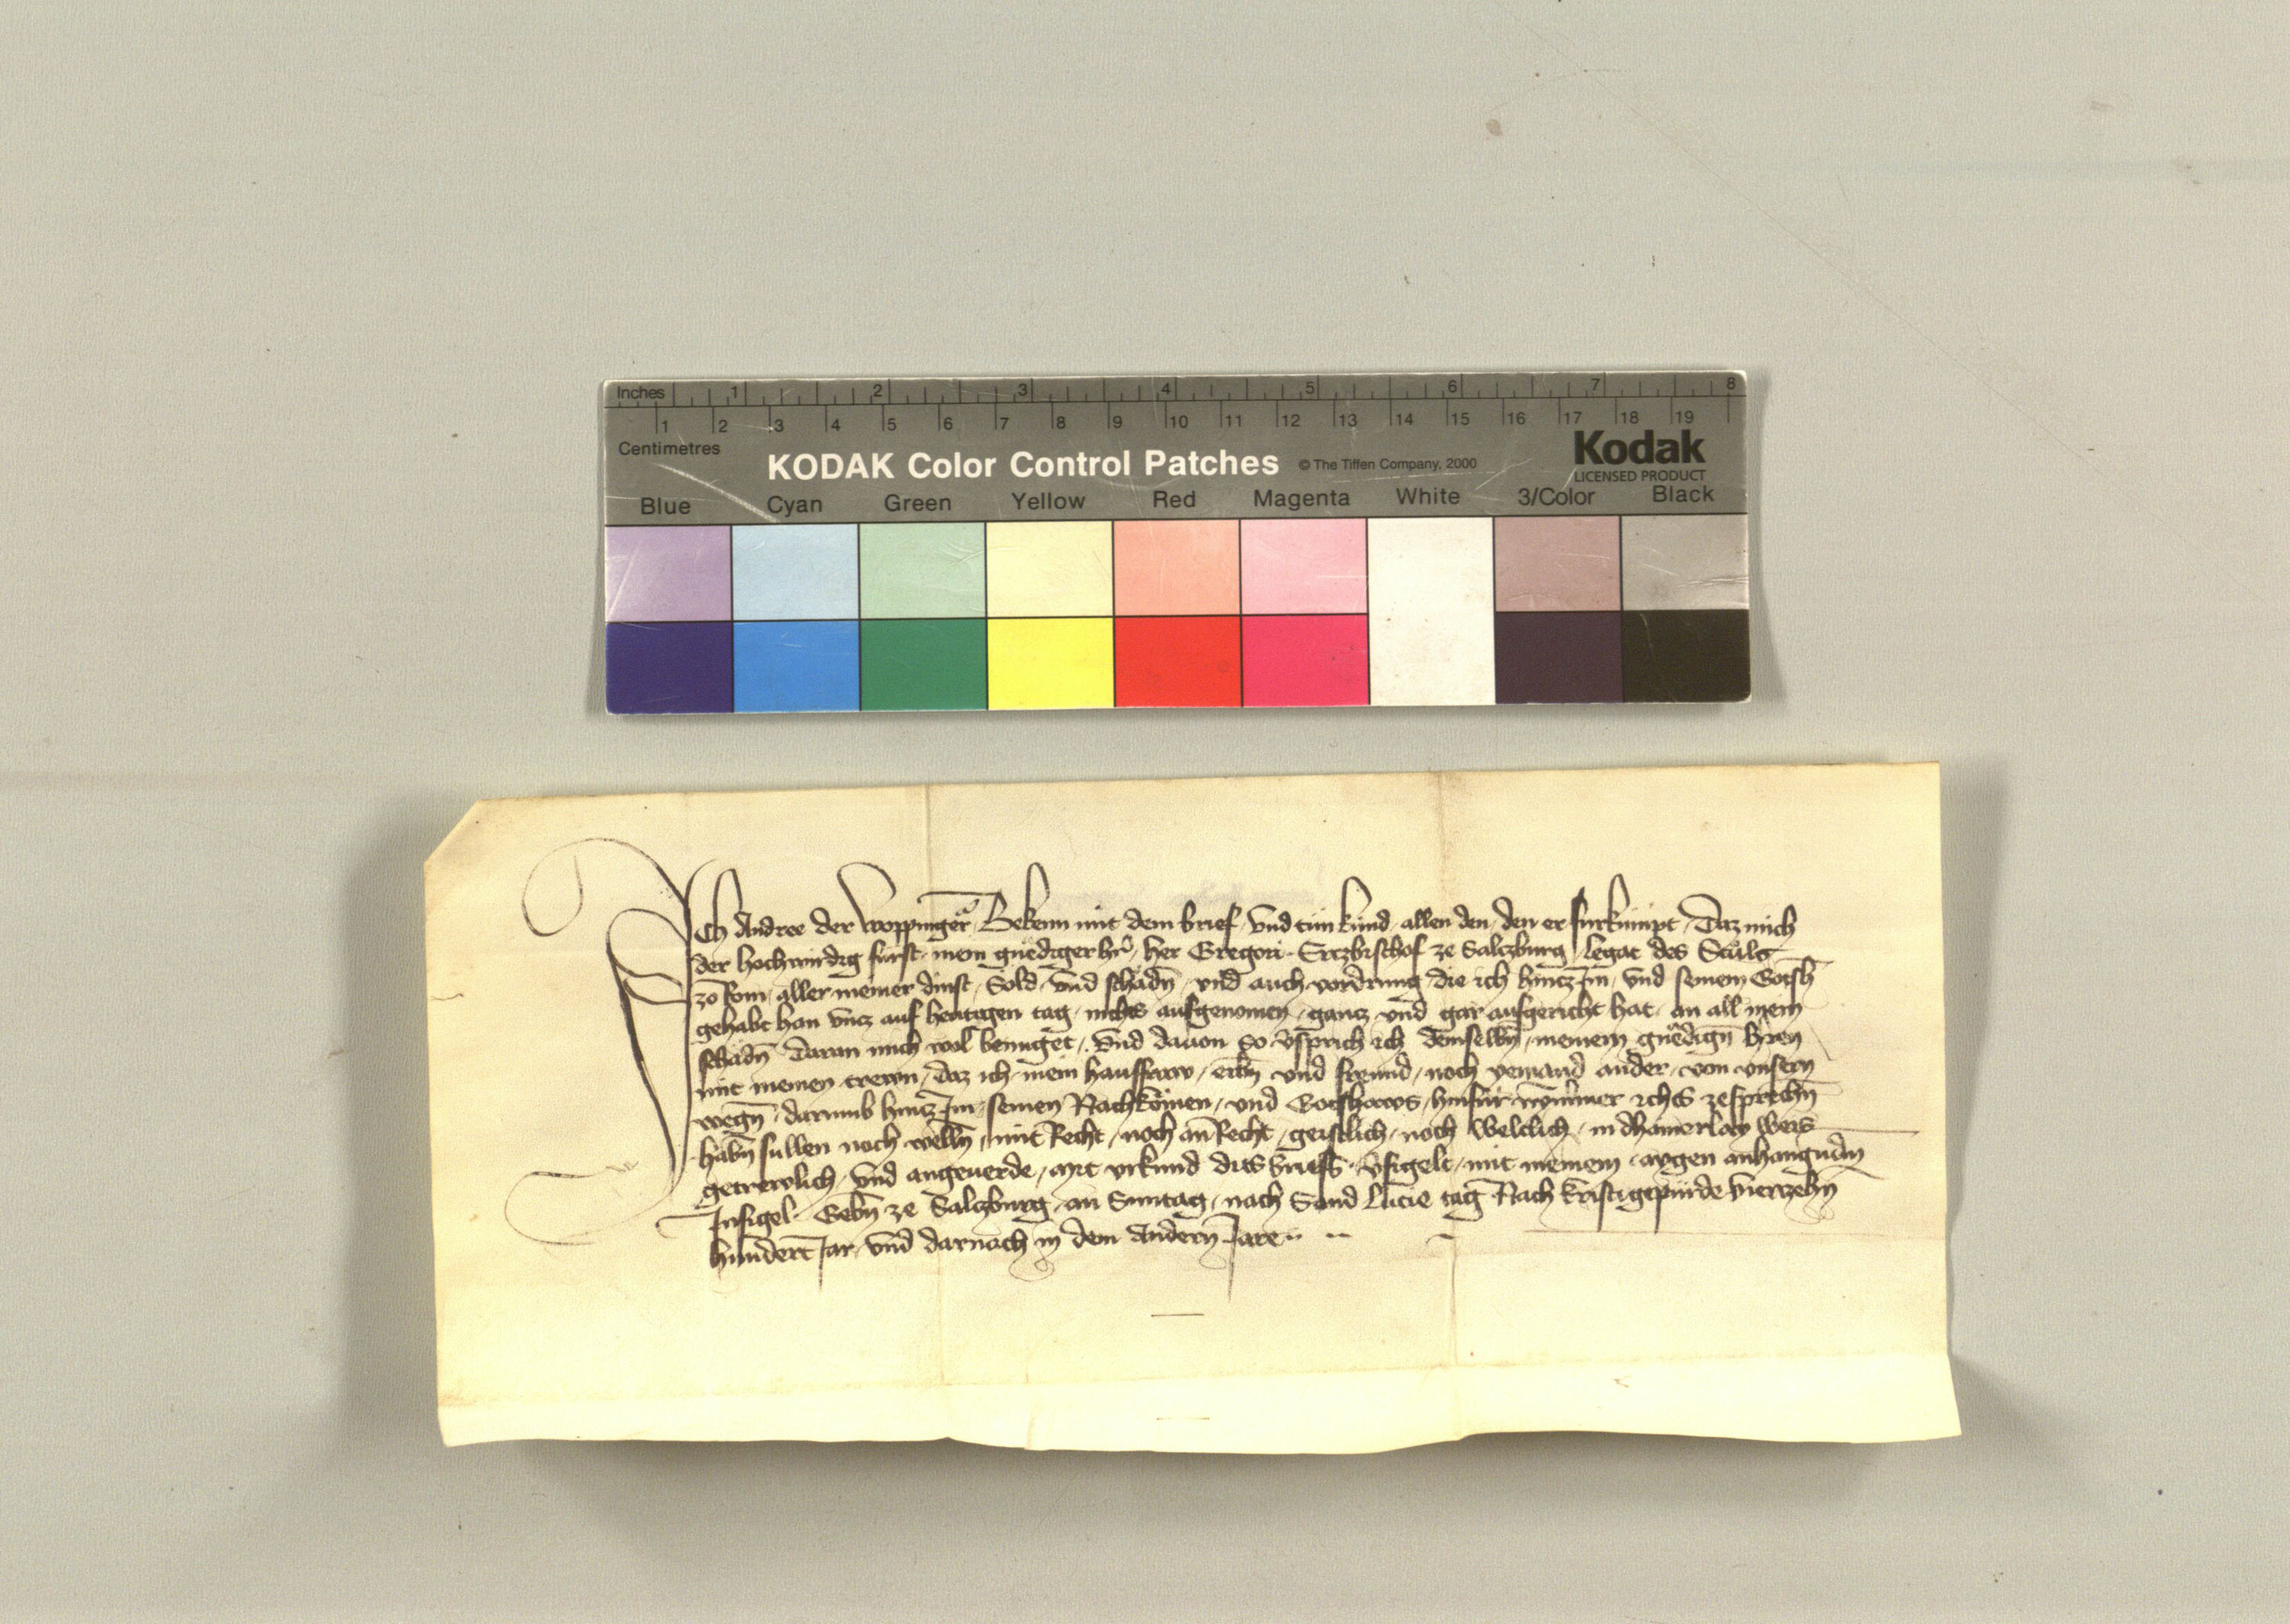 Inches 1 2 3 4 5 6 7 8
1 2 3 4 5 6 7 8 9 10 11 12 13 14 15 16 17 18 19
Centimetres
KODAK Color Control Patches © The Tiffen Company, 2000 Kodak
LICENSED PRODUCT
Blue Cyan Green Yellow Red Magenta White 3/Color Black
Ich Andree der Woppinger Bekenn mit dem brief und tun kund allen den den er furkumpt Daz mich
der hochwirdig fürst mein gnediger hr̄ her Gregori Ertzbischof ze Salczburg Legat des Stuls
ze Rom aller meiner dinst Sold und schadn̄ und auch vordrung die ich hincz Im und seinem Gotsh̄
gehabt han uncz auf hewtigen tag nichts ausgenomen gancz und gar ausgericht hat an all mein
schadn̄ Daran mich wol benüget Und dauon So v̄sprich ich demselbn̄ meinem gnedign̄ hr̄en
mit meinen trewn daz ich mein hausfraw erbn̄ und frewnd noch yemand ander von unsern
wegn̄ darumb hincz Im seinen Nachkomen und Gotshaws hinfür nymmer ichts zesprechn̄
habn̄ sullen noch welln̄ mit Recht noch an Recht geistlich noch weltlich in dhainerlay weis
getrewlich und angeuerde mit urkund dits briefs v̄sigelt mit meinem aygen anhangundn̄
Insigel Gebn̄ ze Salczburg an Suntag nach Sand Lucie tag Nach kristi gepürde vierzehn̄
hundert Jar und darnach in dem Andern Jare